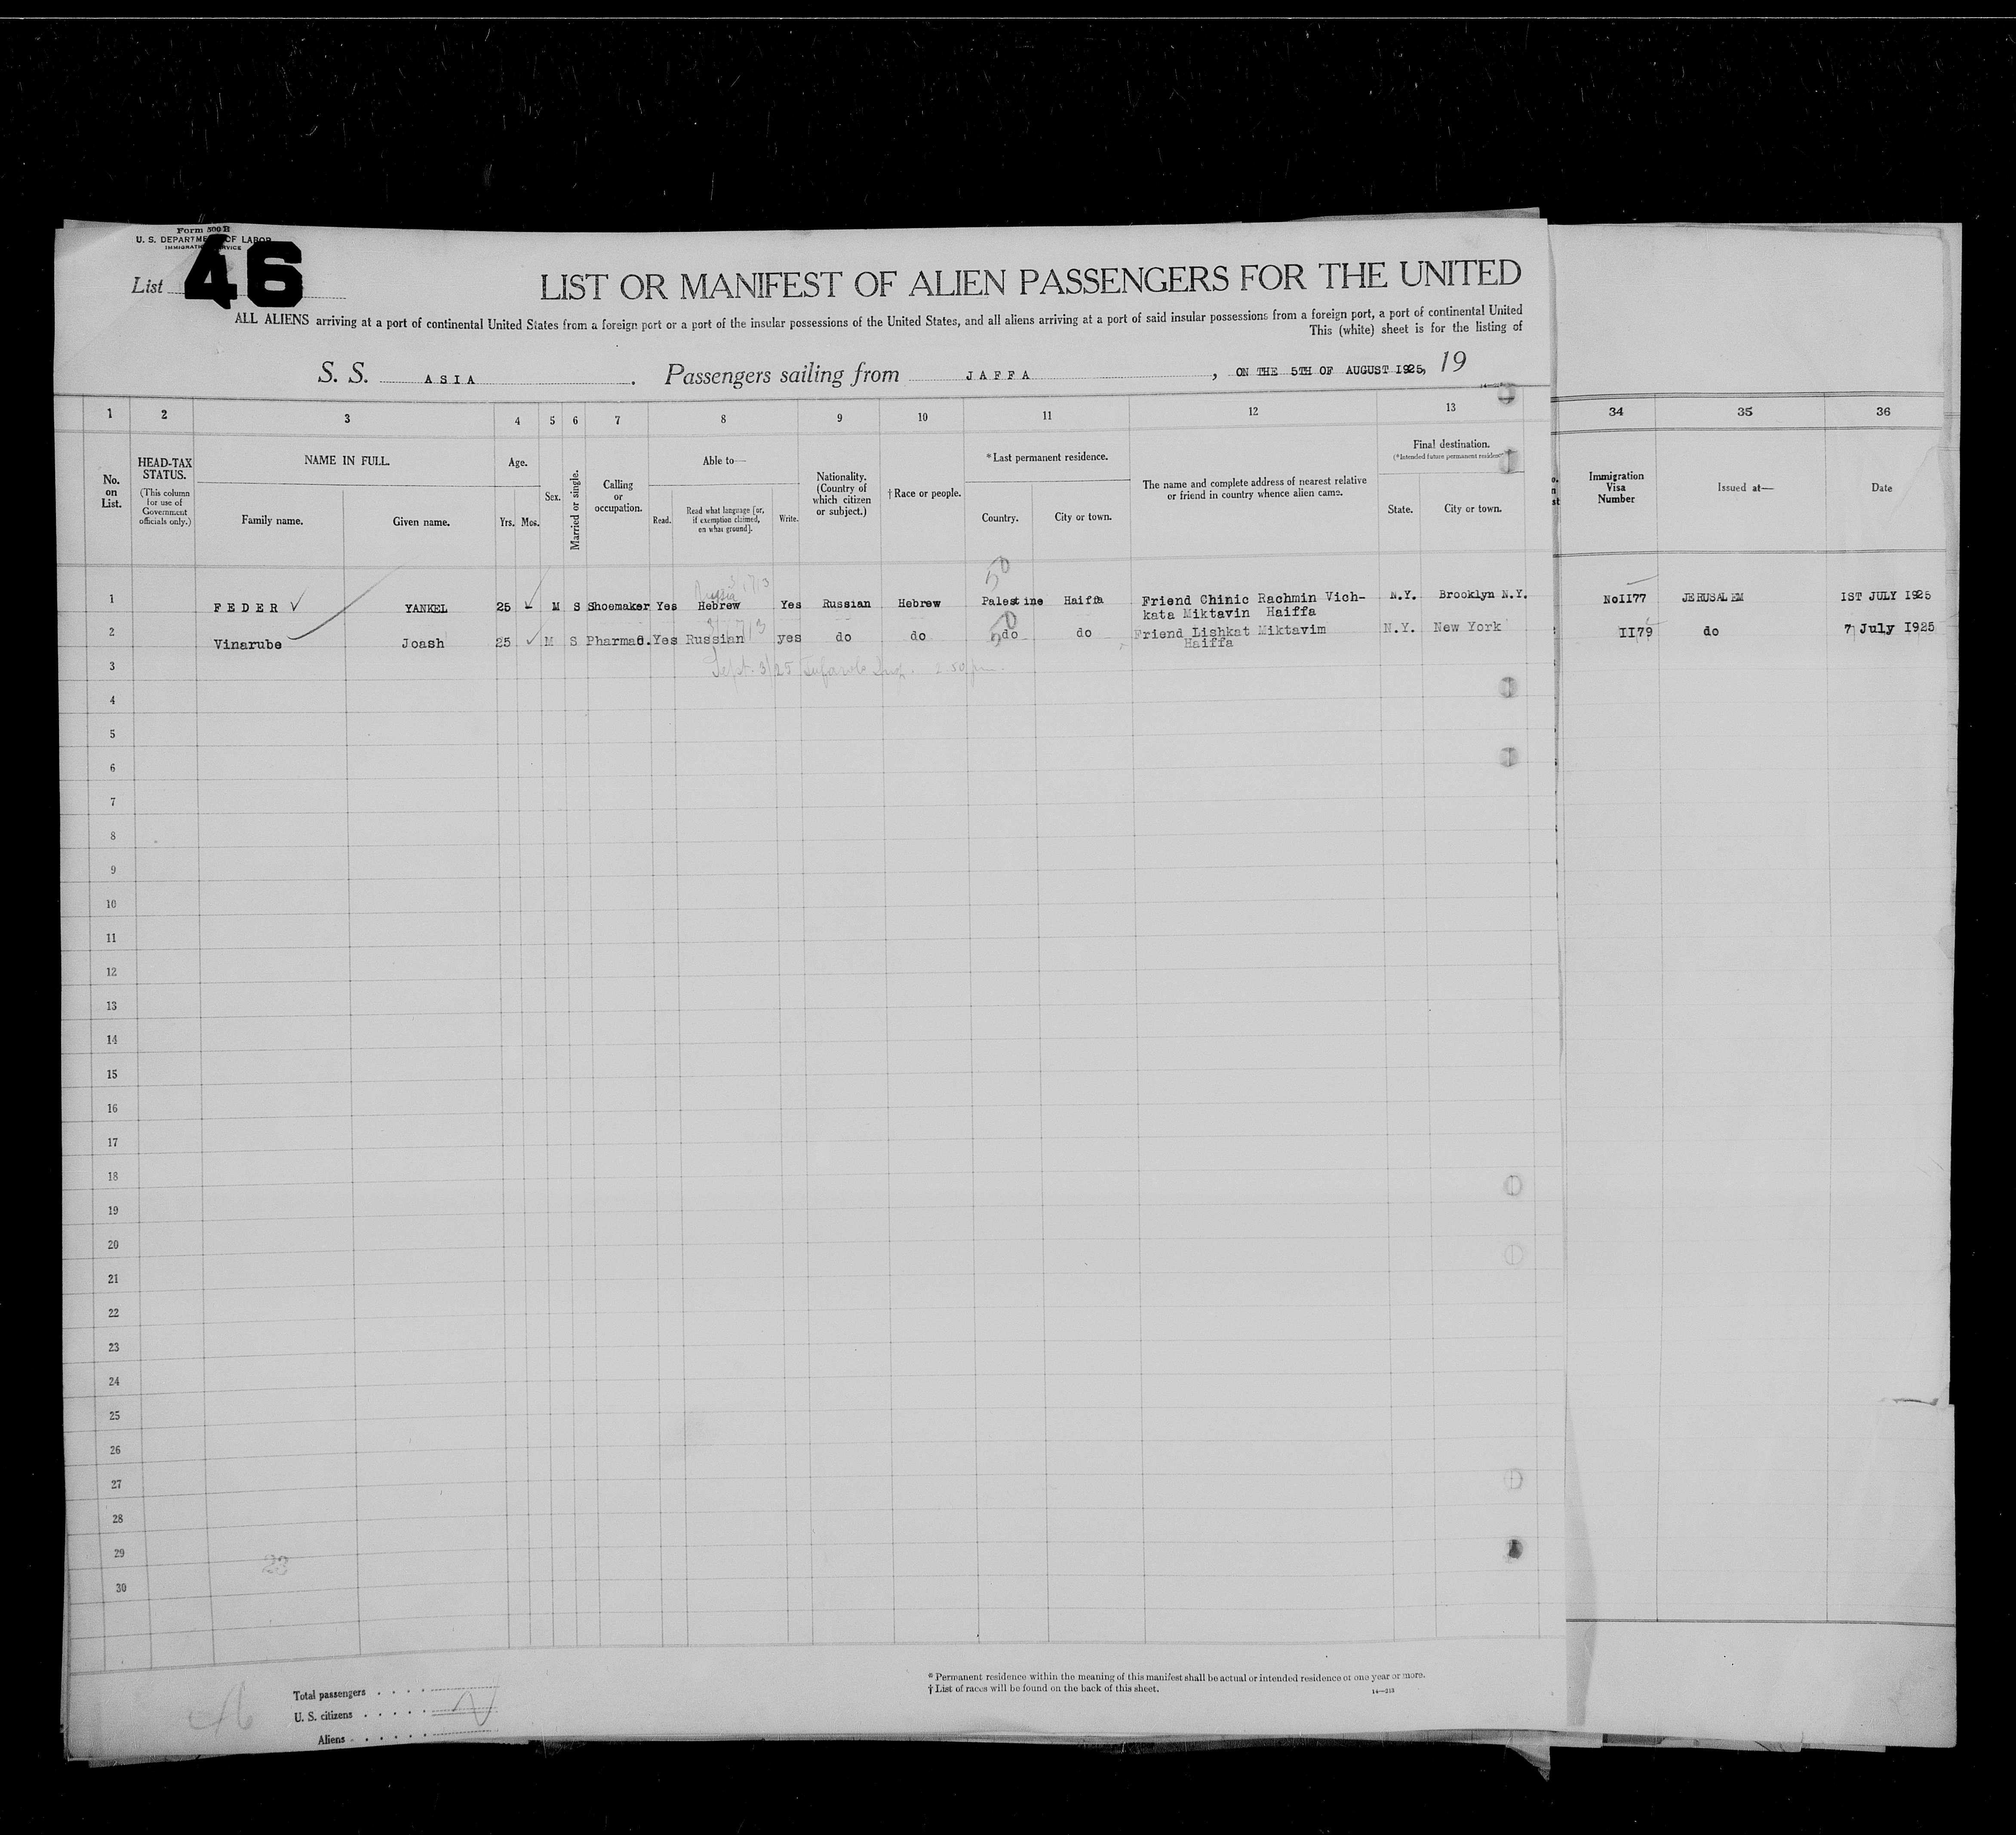 Form 500 B
U. S. DEPARTMENT OF LABOR
IMMIGRATION SERVICE
List 46
LIST OR MANIFEST OF ALIEN PASSENGERS FOR THE UNITED
ALL ALIENS arriving at a port of continental United States from a foreign port or a port of the insular possessions of the United States, and all aliens arriving at a port of said insular possessions from a foreign port, a port of continental United
This (white) sheet is for the listing of
S. S. ASIA. Passengers sailing from JAFFA, ON THE 5TH OF AUGUST I925, 19
1 2 3 4 5 6 7 8 9 10 11 12 13 34 35 36
No. on List.
HEAD-TAX STATUS.
(This column for use of Government officials only.)
NAME IN FULL.
Family name. Given name.
Age.
Yrs. Mos.
Sex.
Married or single.
Calling or occupation.
Able to—
Read. Read what language [or, if exemption claimed, on what ground]. Write.
Nationality. (Country of which citizen or subject.)
†Race or people.
*Last permanent residence.
Country. City or town.
The name and complete address of nearest relative or friend in country whence alien came.
Final destination.
(*Intended future permanent residence)
State. City or town.
Immigration Visa Number
Issued at—
Date
50
Russia
1 FEDER YANKEL 25 M S Shoemaker Yes Hebrew Yes Russian Hebrew Palestine Haiffa Friend Chinic Rachmin Vich- N.Y. Brooklyn N.Y. NoII77 JERUSALEM IST JULY I925
kata Miktavin Haiffa
50
2 Vinarube Joash 25 M S Pharmac. Yes Russian yes do do do do Friend Lishkat Miktavim N.Y. New York II79 do 7 July I925
Haiffa
3 Sept. 3/25
4
5
6
7
8
9
10
11
12
13
14
15
16
17
18
19
20
21
22
23
24
25
26
27
28
29
23
30
* Permanent residence within the meaning of this manifest shall be actual or intended residence of one year or more.
† List of races will be found on the back of this sheet.
14—313
Total passengers
U. S. citizens
Aliens